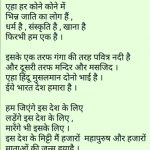 एहा हर कोने कोने में
भिन्न जाति का लोग हैं ,
धर्म है , संस्कृति है , खाना है
फिरभी हम एक है ।
इसके एक तरफ गंगा की तरह पवित्र नदी है
और दूसरी तरफ मन्दिर और मसजिद ।
एहा हिंदू मुसलमान दोनो भाई है ।
ईये भारत देश हमारा है ।
हम जिएंगे इस देश के लिए
लड़ेंगे इस देश के लिए ,
मारेंगे भी इसके लिए ।
इस देश के मिट्टी में हजारों महापुरुष और हजारों
माताओं की जन्म हुयाहै ।